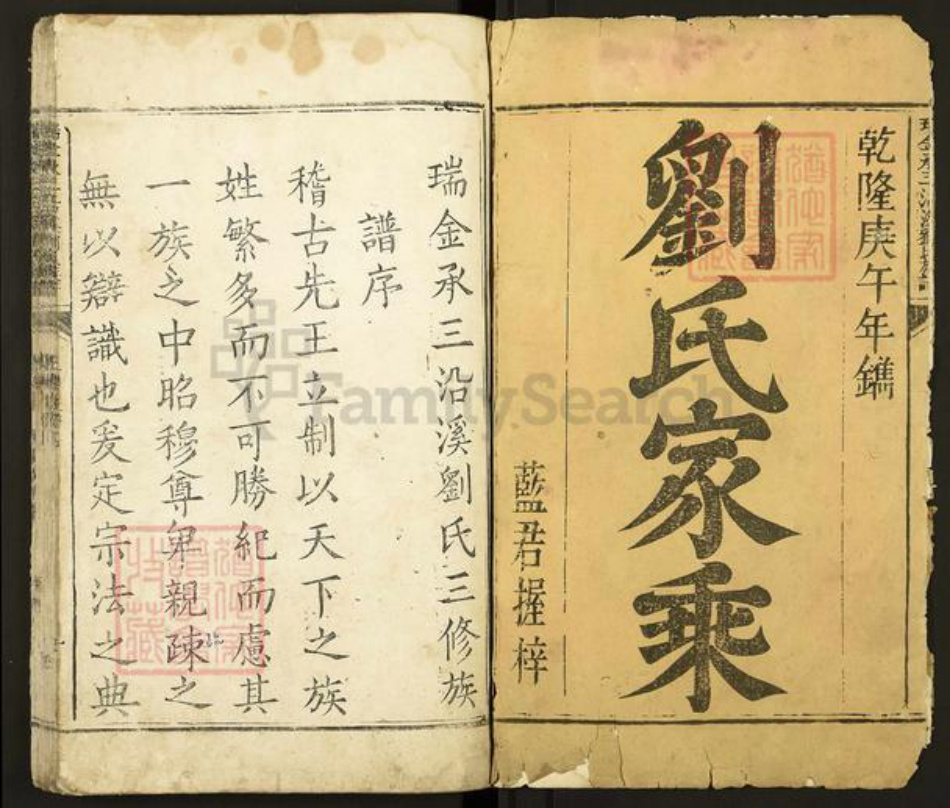 乾隆庚午年鐫
劉氏家乘
藍君握梓
瑞金承三沿溪劉氏三修族
譜序
稽古先王立制以天下之族
姓繁多而不可勝紀而慮其
一族之中昭穆尊卑親疎之
無以辯識也爰定宗法之典
FamilySearch